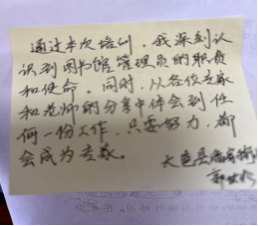 通过本次培训，我深刻认
识到图书馆管理员的职责
和使命。同时，从各位专家
和老师的分享中体会到任
何一份工作，只要努力，都
会成为专家。
大邑县